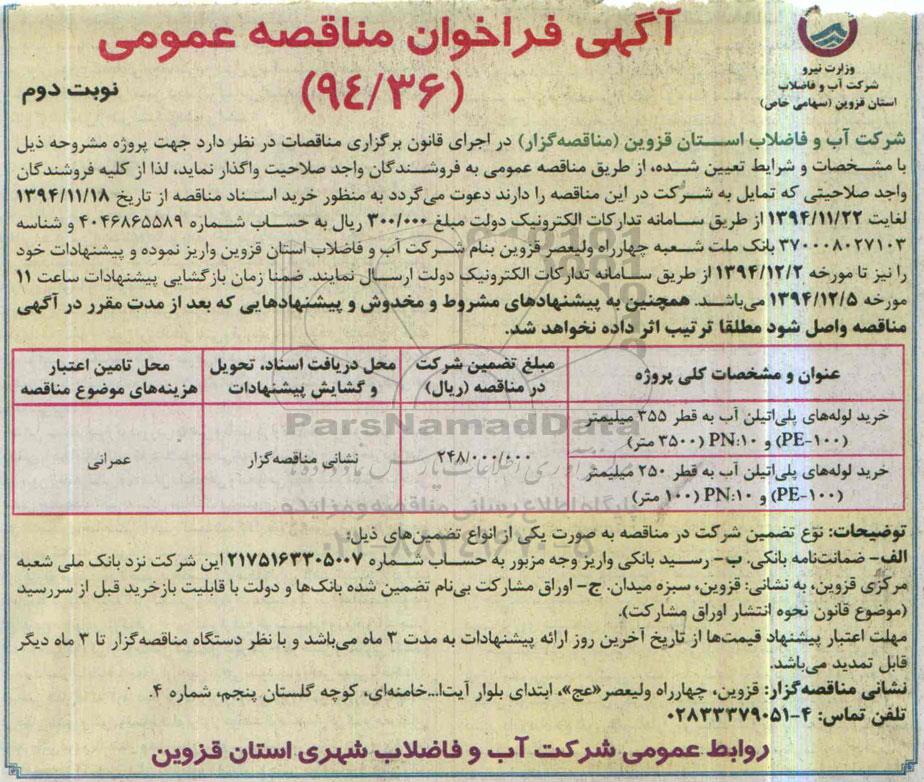 آگهی فراخوان مناقصه عمومی
(۹٤/۳۶)
نوبت دوم
وزارت نیرو
شرکت آب و فاضلاب
استان قزوین (سهامی خاص)
شرکت آب و فاضلاب استان قزوین (مناقصه‌گزار) در اجرای قانون برگزاری مناقصات در نظر دارد جهت پروژه مشروحه ذیل
با مشخصات و شرایط تعیین شده، از طریق مناقصه عمومی به فروشندگان واجد صلاحیت واگذار نماید، لذا از کلیه فروشندگان
واجد صلاحیتی که تمایل به شرکت در این مناقصه را دارند دعوت می‌گردد به منظور خرید اسناد مناقصه از تاریخ ۱۳۹۴/۱۱/۱۸
لغایت ۱۳۹۴/۱۱/۲۲ از طریق سامانه تدارکات الکترونیک دولت مبلغ ۳۰۰/۰۰۰ ریال به حساب شماره ۴۰۴۶۸۶۵۵۸۹ و شناسه
۳۷۰۰۰۸۰۲۷۱۰۳ بانک ملت شعبه چهارراه ولیعصر قزوین بنام شرکت آب و فاضلاب استان قزوین واریز نموده و پیشنهادات خود
را نیز تا مورخه ۱۳۹۴/۱۲/۲ از طریق سامانه تدارکات الکترونیک دولت ارسال نمایند. ضمنا زمان بازگشایی پیشنهادات ساعت ۱۱
مورخه ۱۳۹۴/۱۲/۵ می‌باشد. همچنین به پیشنهادهای مشروط و مخدوش و پیشنهادهایی که بعد از مدت مقرر در آگهی
مناقصه واصل شود مطلقا ترتیب اثر داده نخواهد شد.
عنوان و مشخصات کلی پروژه
مبلغ تضمین شرکت
در مناقصه (ریال)
محل دریافت اسناد، تحویل
و گشایش پیشنهادات
محل تامین اعتبار
هزینه‌های موضوع مناقصه
خرید لوله‌های پلی‌اتیلن آب به قطر ۳۵۵ میلیمتر
(PE-۱۰۰) و PN:۱۰ (۳۵۰۰ متر)
خرید لوله‌های پلی‌اتیلن آب به قطر ۲۵۰ میلیمتر
(PE-۱۰۰) و PN:۱۰ (۱۰۰ متر)
۲۴۸/۰۰۰/۰۰۰
نشانی مناقصه‌گزار
عمرانی
ParsNamadData
توضیحات: نوع تضمین شرکت در مناقصه به صورت یکی از انواع تضمین‌های ذیل:
الف- ضمانت‌نامه بانکی. ب- رسید بانکی واریز وجه مزبور به حساب شماره ۲۱۷۵۱۶۳۳۰۵۰۰۷ این شرکت نزد بانک ملی شعبه
مرکزی قزوین، به نشانی: قزوین، سبزه میدان. ج- اوراق مشارکت بی‌نام تضمین شده بانک‌ها و دولت با قابلیت بازخرید قبل از سررسید
(موضوع قانون نحوه انتشار اوراق مشارکت).
مهلت اعتبار پیشنهاد قیمت‌ها از تاریخ آخرین روز ارائه پیشنهادات به مدت ۳ ماه می‌باشد و با نظر دستگاه مناقصه‌گزار تا ۳ ماه دیگر
قابل تمدید می‌باشد.
نشانی مناقصه‌گزار: قزوین، چهارراه ولیعصر«عج»، ابتدای بلوار آیت‌ا...خامنه‌ای، کوچه گلستان پنجم، شماره ۴.
تلفن تماس: ۴-۰۲۸۳۳۳۷۹۰۵۱
روابط عمومی شرکت آب و فاضلاب شهری استان قزوین